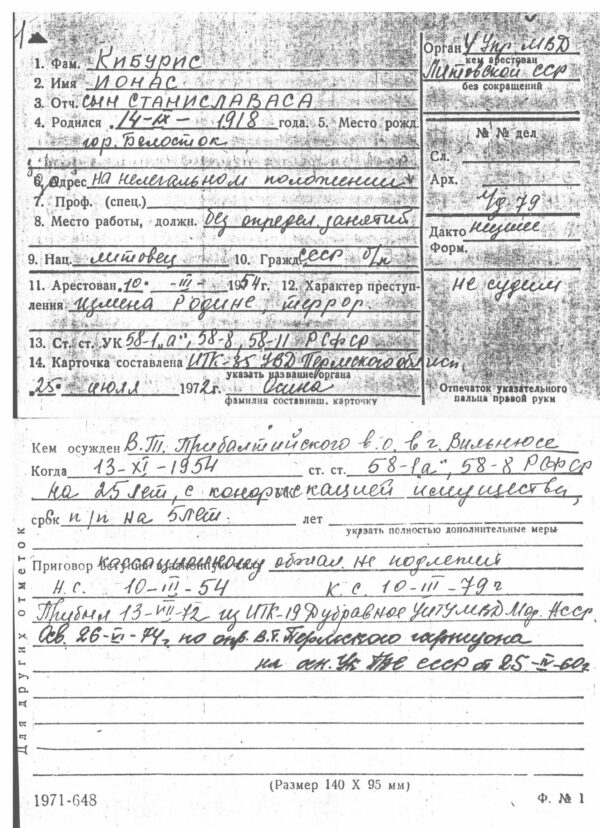 1. Фам. КИБУРИС
2. Имя ИОНАС
3. Отч. СЫН СТАНИСЛАВАСА
4. Родился 14-IX- 1918 года. 5. Место рожд.
гор. Белосток
6. Адрес на нелегальном положении
7. Проф. (спец.)
8. Место работы, должн. без определ. занятий
9. Нац. литовец 10. Гражд. СССР б/п
11. Арестован 10. -III- 1954 г. 12. Характер преступ-
ления измена Родине, террор
13. Ст. ст. УК 58-1„а", 58-8, 58-11 РСФСР
14. Карточка составлена ИТК-35 УВД Пермского облисп.
указать название органа
„25" июля 1972 г. Осина
фамилия составивш. карточку
Орган У Упр. МВД
кем арестован
Литовской ССР
без сокращений
№ № дел
Сл.
Арх.
79
Дакто
Форм.
не судим
Отпечаток указательного
пальца правой руки
Кем осужден В.Т. Прибалтийского в.о. в г. Вильнюсе
Когда 13-XI-1954 ст. ст. 58-1а", 58-8 РСФСР
на 25 лет, с конфискацией имущества,
срок п/п на 5 лет. лет
указать полностью дополнительные меры
Приговор кассационному обжал. не подлежит
Н.С. 10-III-54 К.С. 10-III-79 г
Прибыл 13-VII-72 из ИТК-19 Дубравное УИТУ МВД Мор. АССР.
Осв. 26-VI-74 г. по опр. В.Т. Пермского гарнизона
на осн. Ук ПВС СССР от 25-IV-60 г
Для других отметок
(Размер 140 X 95 мм)
1971-648 Ф. № 1